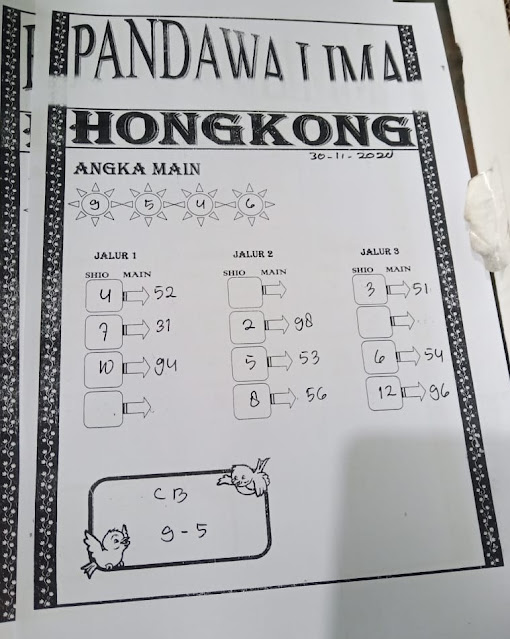 PANDAWA LIMA
HONGKONG
30-11-2024
ANGKA MAIN
9 5 4 6
JALUR 1 JALUR 2 JALUR 3
SHIO MAIN SHIO MAIN SHIO MAIN
4 52 3 51
7 31 2 98
10 94 5 53 6 54
8 56 12 96
CB
9-5